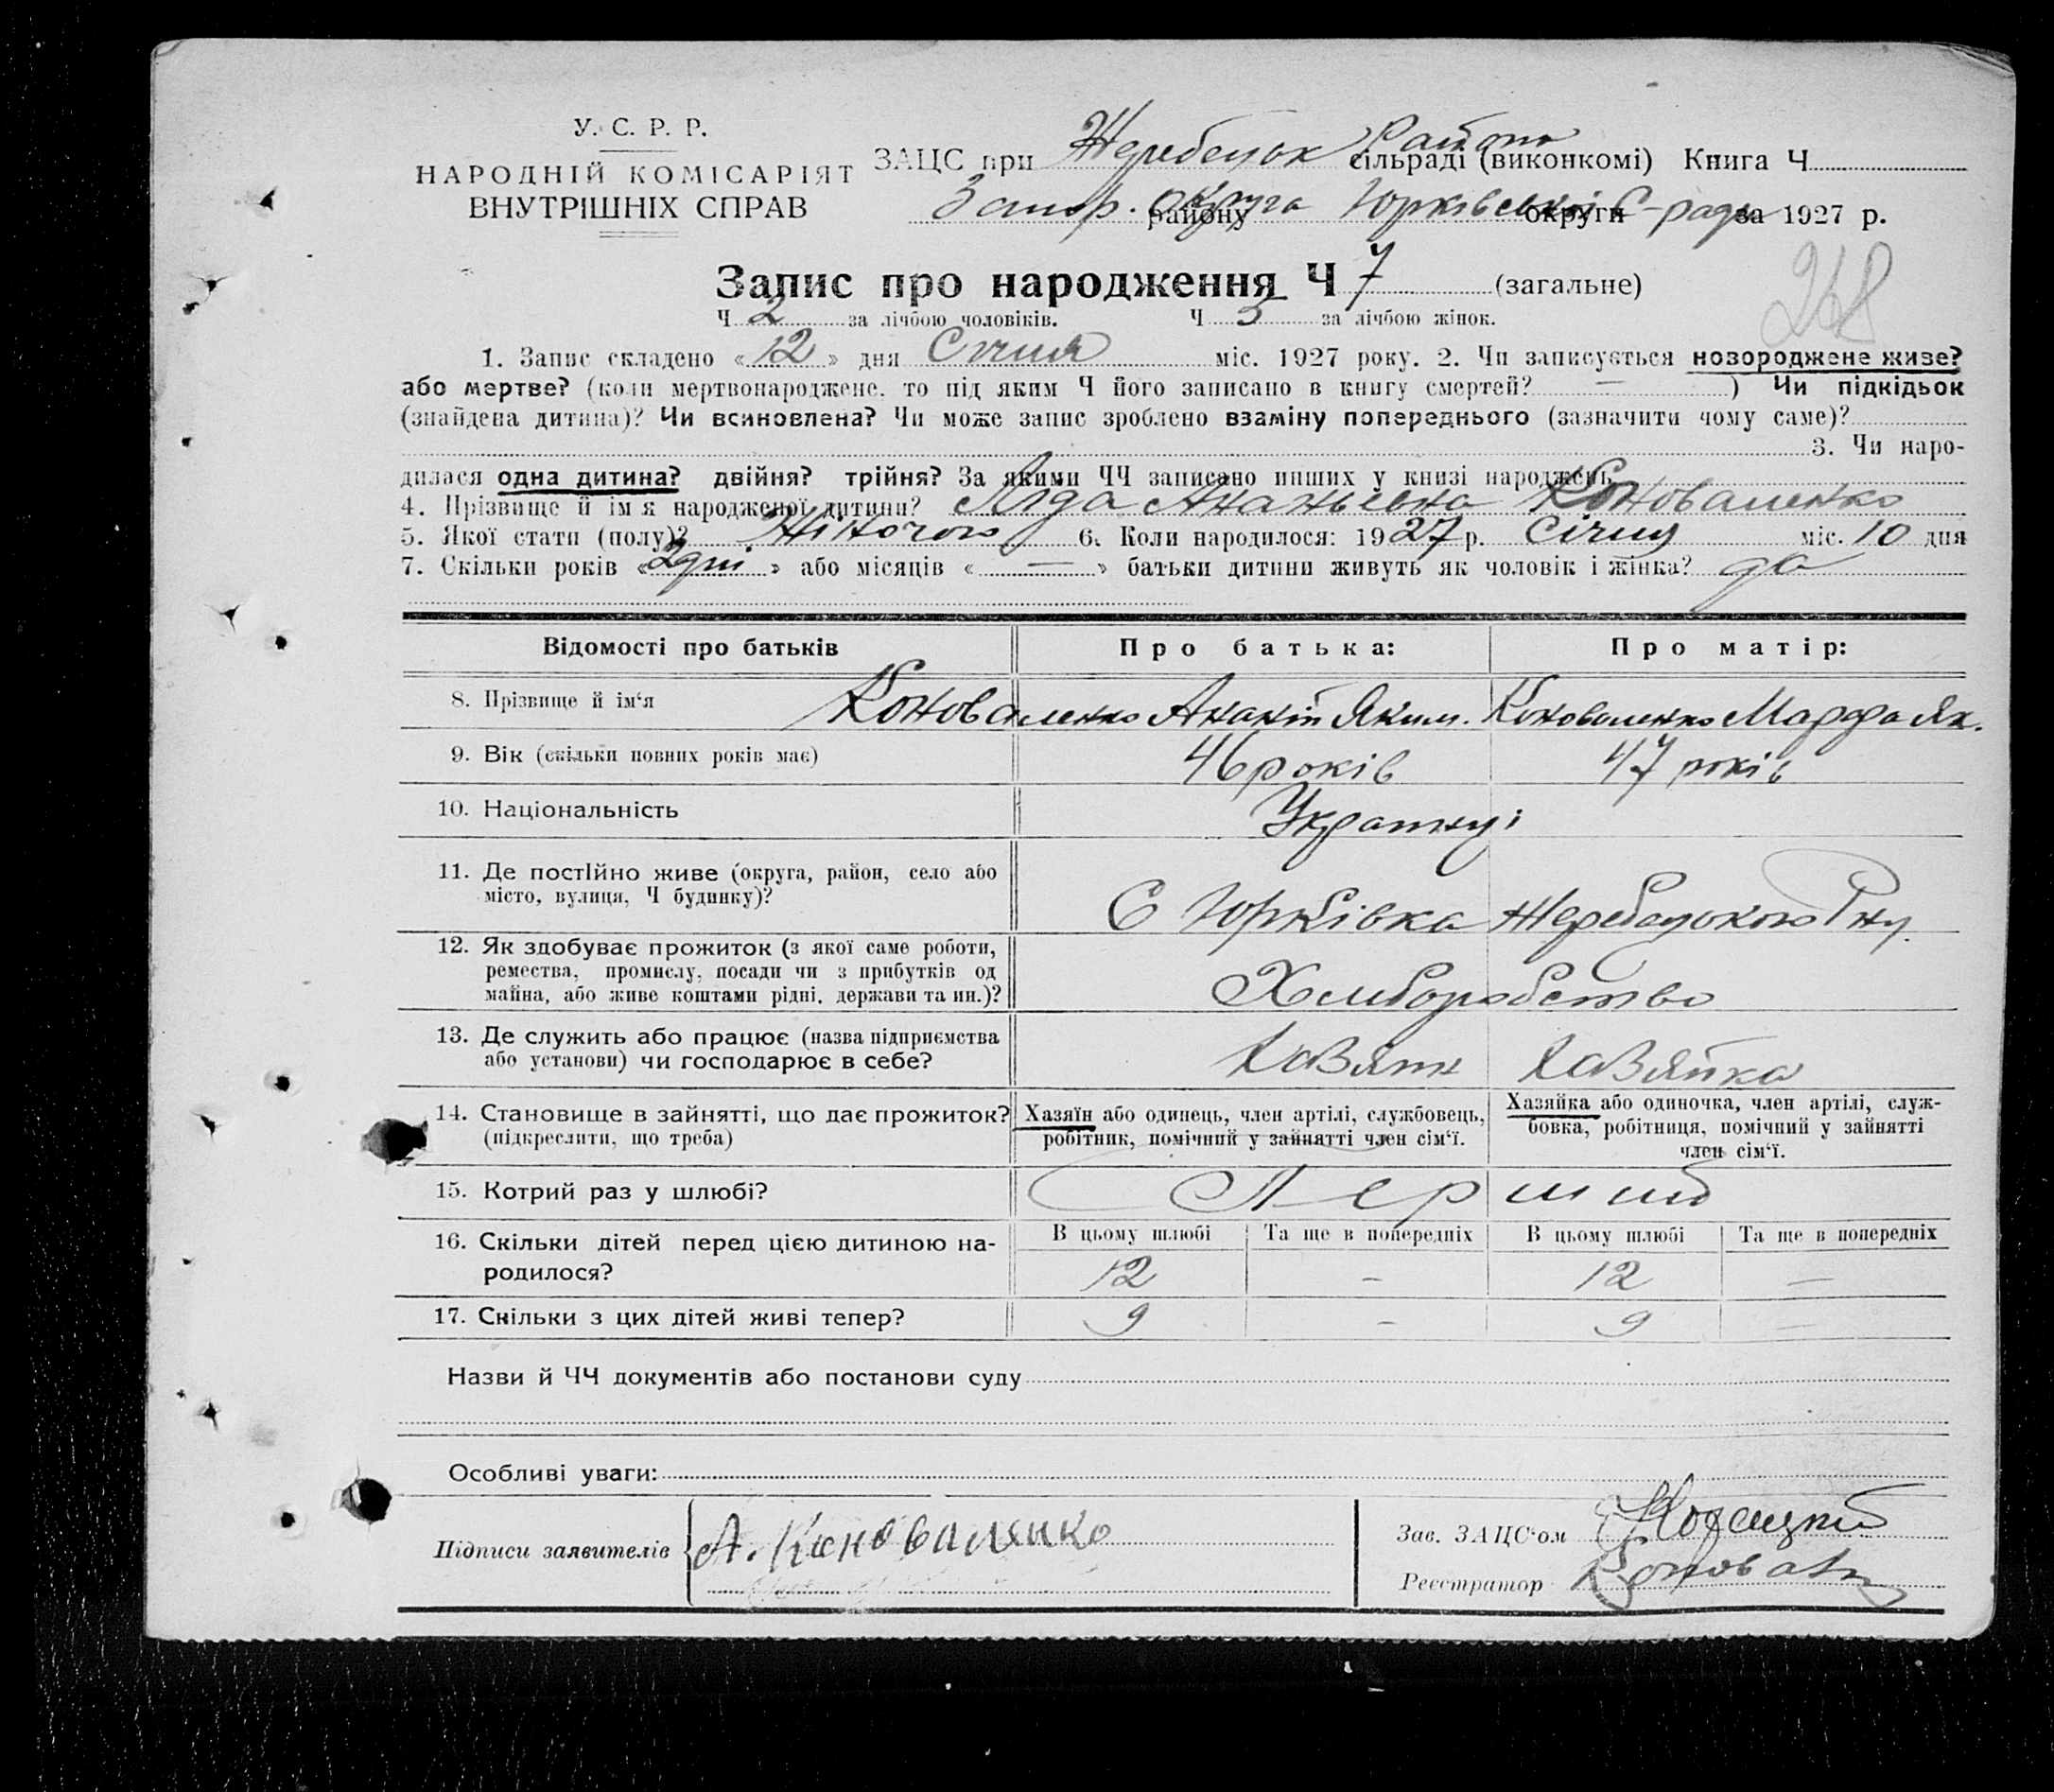 У. С. Р. Р.
НАРОДНІЙ КОМІСАРІЯТ
ВНУТРІШНІХ СПРАВ
ЗАЦС при Жеребецьк Району сільраді (виконкомі) Книга Ч
Запор. округа району Юрківської С-ради округи за 1927 р.
268
Запис про народження Ч 7 (загальне)
Ч 2 за лічбою чоловіків. Ч 5 за лічбою жінок.
1. Запис складено «12» дня Січня міс. 1927 року. 2. Чи записується новороджене живе?
або мертве? (коли мертвонароджене, то під яким Ч його записано в книгу смертей? — ) Чи підкідьок
(знайдена дитина)? Чи всиновлена? Чи може запис зроблено взаміну попереднього (зазначити чому саме)?
3. Чи наро-
дилася одна дитина? двійня? трійня? За якими ЧЧ записано инших у книзі народжень
4. Прізвище й ім'я народженої дитини? Ліда Ананьевна Коноваленко
5. Якої стати (полу)? Жіночою 6. Коли народилося: 1927 р. Січня міс. 10 дня
7. Скільки років «2 дні» або місяців « — » батьки дитини живуть як чоловік і жінка? да
Відомості про батьків Про батька: Про матір:
8. Прізвище й ім'я Коноваленко Ананій Яким. Коноваленко Марфа Як.
9. Вік (скільки повних років має) 46 років 47 років
10. Національність Українці
11. Де постійно живе (округа, район, село або
місто, вулиця, Ч будинку)? С Юрківка Жеребецького Р-ну.
12. Як здобуває прожиток (з якої саме роботи,
ремества, промислу, посади чи з прибутків од
майна, або живе коштами рідні, держави та ин.)? Хліборобство
13. Де служить або працює (назва підприємства
або установи) чи господарює в себе? Хазяїн Хазяйка
14. Становище в зайнятті, що дає прожиток?
(підкреслити, що треба)
Хазяїн або одинець, член артілі, службовець,
робітник, помічний у зайнятті член сім'ї.
Хазяйка або одиночка, член артілі, служ-
бовка, робітниця, помічний у зайнятті
член сім'ї.
15. Котрий раз у шлюбі? Перший
16. Скільки дітей перед цією дитиною на-
родилося?
В цьому шлюбі Та ще в попередніх В цьому шлюбі Та ще в попередніх
12 – 12 —
17. Скільки з цих дітей живі тепер? 9 – 9 —
Назви й ЧЧ документів або постанови суду
Особливі уваги:
Підписи заявителів А. Коноваленко
Зав. ЗАЦС'ом
Реєстратор